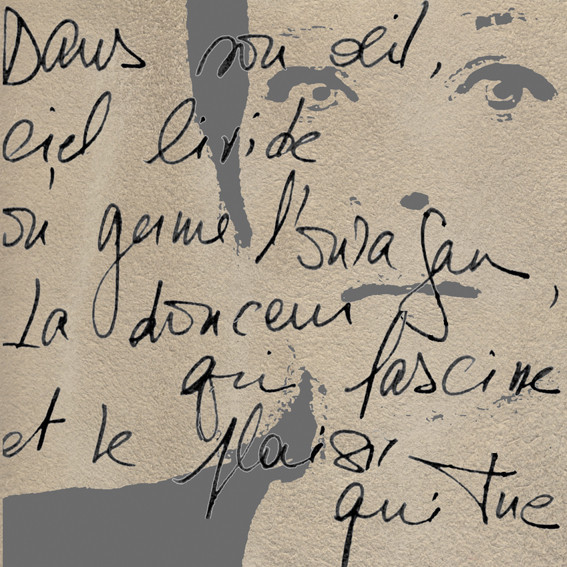 Dans son œil,
ciel livide
où germe l'ouragan,
La douceur
qui fascine
et le plaisir
qui tue